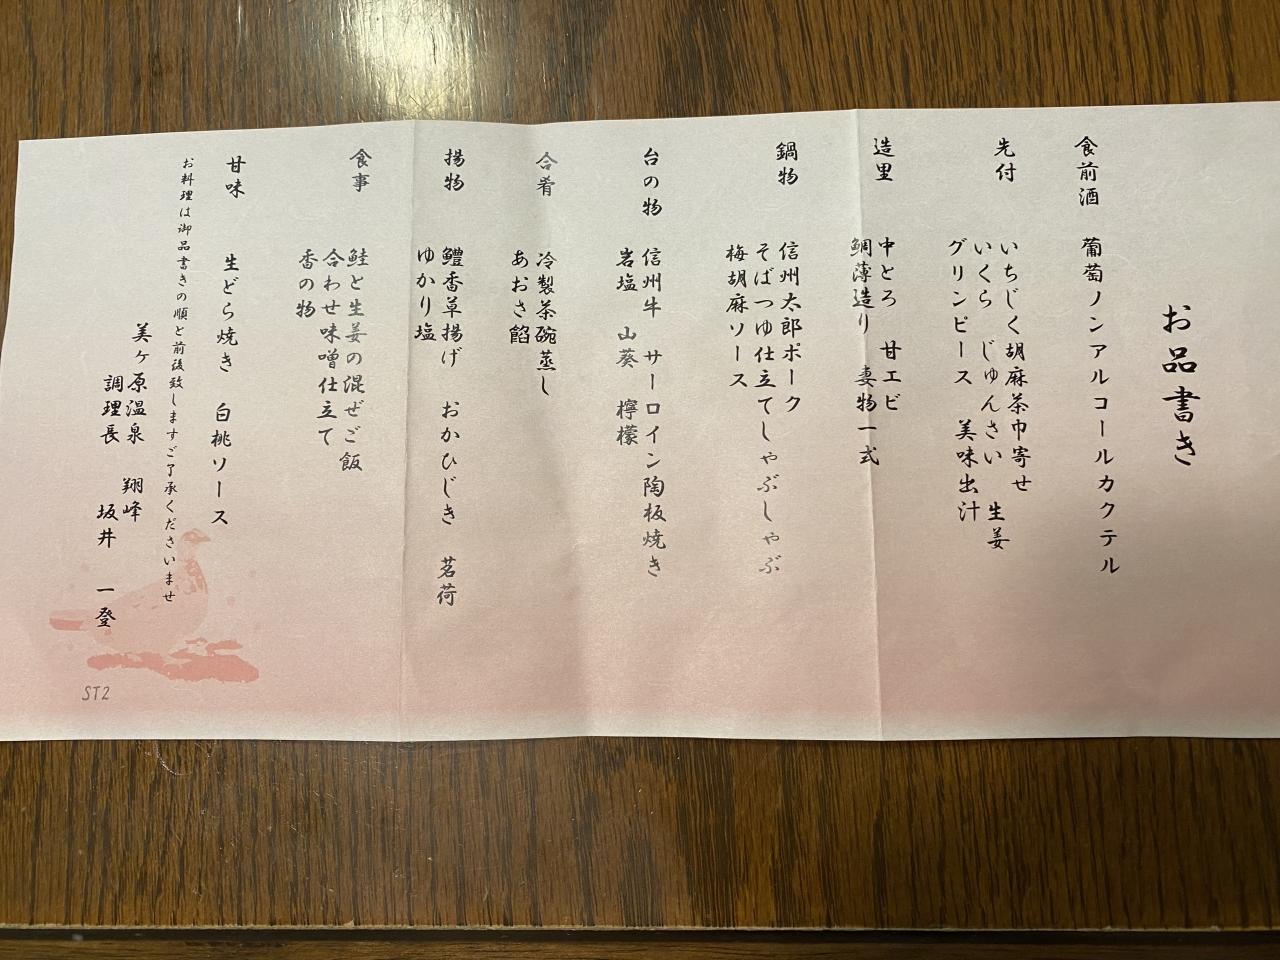 お品書き
食前酒　葡萄ノンアルコールカクテル
先付　いちじく胡麻茶巾寄せ
いくら　じゅんさい　生姜
グリンピース　美味出汁
造里　中とろ　甘エビ
鯛薄造り　妻物一式
鍋物　信州太郎ポーク
そばつゆ仕立てしゃぶしゃぶ
梅胡麻ソース
台の物　信州牛　サーロイン陶板焼き
岩塩　山葵　檸檬
合肴　冷製茶碗蒸し
あおさ餡
揚物　鱧香草揚げ　おかひじき　茗荷
ゆかり塩
食事　鮭と生姜の混ぜご飯
合わせ味噌仕立て
香の物
甘味　生どら焼き　白桃ソース
お料理は御品書きの順と前後致しますご了承くださいませ
美ヶ原温泉　翔峰
調理長　坂井　一登
ST2